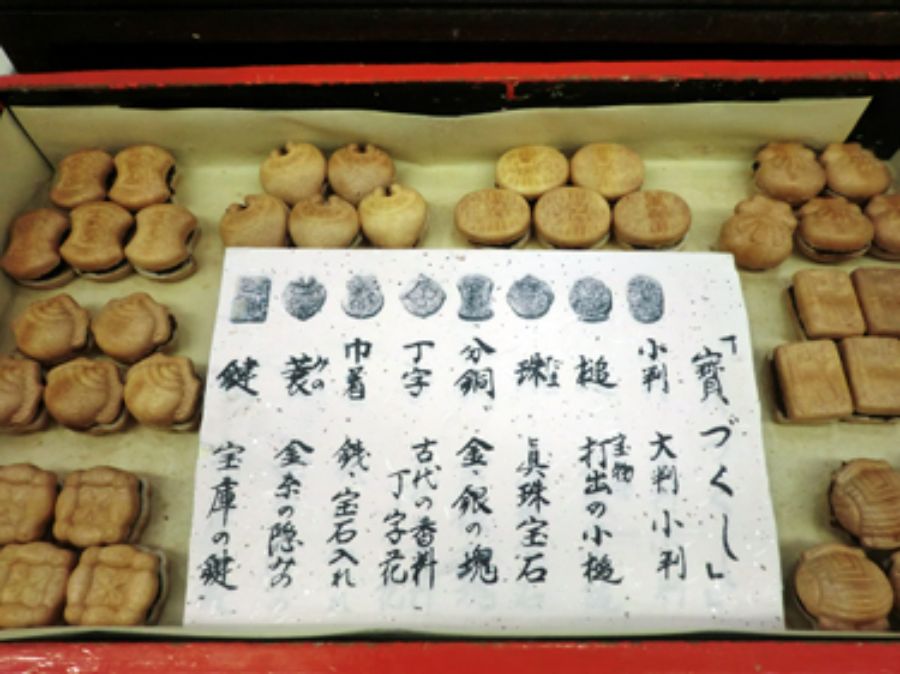 「寳づくし」
小判 大判小判
槌 宝物打出の小槌
珠 眞珠宝石
分銅 金・銀の塊
丁字 古代の香料丁字花
巾着 銭・宝石入れ
蓑みの 金糸の隠みの
鍵 宝庫の鍵